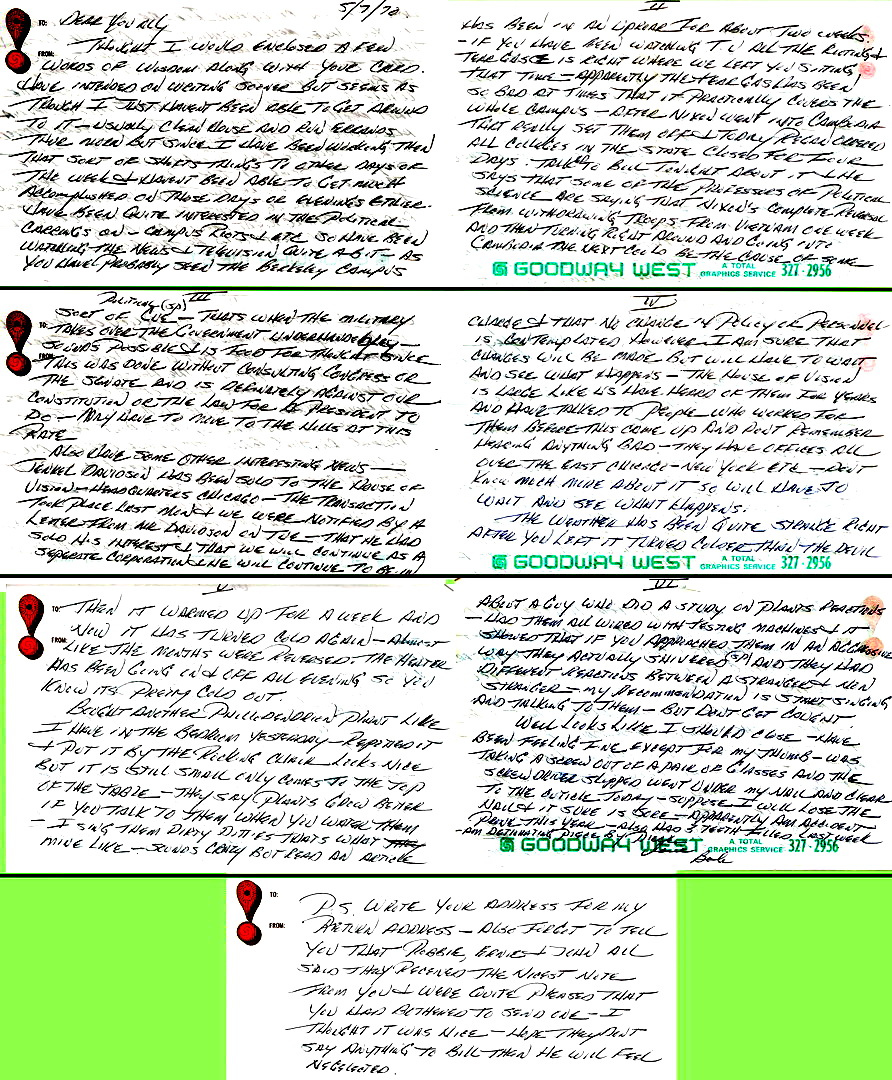 5/7/70
TO: DEAR YOU ALL
THOUGHT I WOULD ENCLOSED A FEW
FROM: WORDS OF WISDOM ALONG WITH YOUR CARD
HAVE INTENDED ON WRITING SOONER BUT SEEMS AS
THOUGH I JUST HAVENT BEEN ABLE TO GET AROUND
TO IT - USUALLY CLEAN HOUSE AND RUN ERRANDS
THUR MORN BUT SINCE I HAVE BEEN WORKING THEN
THAT SORT OF SHIFTS THINGS TO OTHER DAYS OF
THE WEEK & HAVENT BEEN ABLE TO GET MUCH
ACCOMPLISHED ON THOSE DAYS OR EVENINGS EITHER.
HAVE BEEN QUITE INTERESTED IN THE POLITICAL
CARRINGS ON - CAMPUS RIOTS & ETC SO HAVE BEEN
WATCHING THE NEWS & TELEVISION QUITE A BIT - AS
YOU HAVE PROBABLY SEEN THE BERKELEY CAMPUS
II
HAS BEEN IN AN UPROAR FOR ABOUT TWO WEEKS.
- IF YOU HAVE BEEN WATCHING T.V ALL THE RIOTING &
TEAR GAS IS RIGHT WHERE WE LEFT YOU SITTING
THAT TIME - APPARENTLY THE TEAR GAS HAS BEEN
SO BAD AT TIMES THAT IT PRACTICALLY COVERS THE
WHOLE CAMPUS - AFTER NIXON WENT INTO CAMBODIA
THAT REALLY SET THEM OFF & TODAY REGAN ORDERED
ALL COLLEGES IN THE STATE CLOSED FOR FOUR
DAYS. TALKED TO BILL TONIGHT ABOUT IT & HE
SAYS THAT SOME OF THE PROFESSORS OF POLITICAL
SCIENCE ARE SAYING THAT NIXON'S COMPLETE REVERSAL
FROM WITHDRAWING TROOPS FROM VIETNAM ONE WEEK
AND THEN TURNING RIGHT AROUND AND GOING INTO
CAMBODIA THE NEXT COULD BE THE CAUSE OF SOME
GOODWAY WEST A TOTAL GRAPHICS SERVICE 327-2956
III
POLITICAL (SP)
TO: SORT OF CUE - THATS WHEN THE MILITARY
TAKES OVER THE GOVERNMENT UNDERHANDEDLY -
FROM: SOUNDS POSSIBLE & IS FOOD FOR THOUGHT SINCE
THIS WAS DONE WITHOUT CONSULTING CONGRESS OR
THE SENATE AND IS DEFINATELY AGAINST OUR
CONSTITUTION OR THE LAW FOR A PRESIDENT TO
DO - MAY HAVE TO MOVE TO THE HILLS AT THIS
RATE
ALSO HAVE SOME OTHER INTERESTING NEWS -
JENKEL DAVIDSON HAS BEEN SOLD TO THE HOUSE OF
VISION - HEADQUARTERS CHICAGO - THE TRANSACTION
TOOK PLACE LAST MON & WE WERE NOTIFIED BY A
LETTER FROM MR DAVIDSON ON TUE - THAT HE HAD
SOLD HIS INTEREST & THAT WE WILL CONTINUE AS A
SEPERATE CORPORATION & HE WILL CONTINUE TO BE IN
IV
CHARGE & THAT NO CHANGE IN POLICY OR PERSONNEL
IS CONTEMPLATED HOWEVER I AM SURE THAT
CHANGES WILL BE MADE BUT WILL HAVE TO WAIT
AND SEE WHAT HAPPENS - THE HOUSE OF VISION
IS LARGE LIKE US HAVE HEARD OF THEM FOR YEARS
AND HAVE TALKED TO PEOPLE WHO WORKED FOR
THEM BEFORE THIS CAME UP AND DONT REMEMBER
HEARING ANYTHING BAD - THEY HAVE OFFICES ALL
OVER THE EAST CHICAGO - NEW YORK ETC - DONT
KNOW MUCH MORE ABOUT IT SO WILL HAVE TO
WAIT AND SEE WHAT HAPPENS.
THE WEATHER HAS BEEN QUITE STRANGE RIGHT
AFTER YOU LEFT IT TURNED COLDER THAN THE DEVIL
GOODWAY WEST A TOTAL GRAPHICS SERVICE 327-2956
V
TO: THEN IT WARMED UP FOR A WEEK AND
NOW IT HAS TURNED COLD AGAIN - ALMOST
FROM: LIKE THE MONTHS WERE REVERSED. THE HEATER
HAS BEEN GOING ON & OFF ALL EVENING SO YOU
KNOW ITS PRETTY COLD OUT.
BOUGHT ANOTHER PHILLODENDRON PLANT LIKE
I HAVE IN THE BEDROOM YESTERDAY - REPOTTED IT
& PUT IT BY THE ROCKING CHAIR LOOKS NICE
BUT IT IS STILL SMALL ONLY COMES TO THE TOP
OF THE TABLE - THEY SAY PLANTS GROW BETTER
IF YOU TALK TO THEM WHEN YOU WATER THEM
- I SING THEM DIRTY DITTIES THATS WHAT THEY
MINE LIKE - SOUNDS CRAZY BUT READ AN ARTICLE
VI
ABOUT A GUY WHO DID A STUDY ON PLANTS REACTIONS
- HAD THEM ALL WIRED WITH TESTING MACHINES & IT
SHOWED THAT IF YOU APPROACHED THEM IN AN AGGRESSIVE
WAY THEY ACTUALLY SHIVERED (SP) AND THEY HAD
DIFFERENT REACTIONS BETWEEN A STRANGER & NON
STRANGER - MY RECOMMENDATION IS START SINGING
AND TALKING TO THEM - BUT DONT GET CAUGHT.
WELL LOOKS LIKE I SHOULD CLOSE - HAVE
BEEN FEELING FINE EXCEPT FOR MY THUMB - WAS
TAKING A SCREW OUT OF A PAIR OF GLASSES AND THE
SCREW DRIVER SLIPPED WENT UNDER MY NAIL AND CLEAR
TO THE CUTICLE TODAY - SUPPOSE I WILL LOSE THE
NAIL & IT SURE IS SORE - APPARENTLY AM ACCIDENT
PRONE THIS YEAR - ALSO HAD 3 TEETH FILLED LAST WEEK
- AM DETERIATING PIECE BY
GOODWAY WEST A TOTAL GRAPHICS SERVICE 327-2956
Love
Bob
TO: P.S. WRITE YOUR ADDRESS FOR MY
FROM: RETURN ADDRESS - ALSO FORGOT TO TELL
YOU THAT ROBBIE, ERNIE & JOHN ALL
SAID THEY RECEIVED THE NICEST NOTE
FROM YOU & WERE QUITE PLEASED THAT
YOU HAD BOTHERED TO SEND ONE - I
THOUGHT IT WAS NICE - HOPE THEY DONT
SAY ANYTHING TO BILL THEN HE WILL FEEL
NEGELECTED.